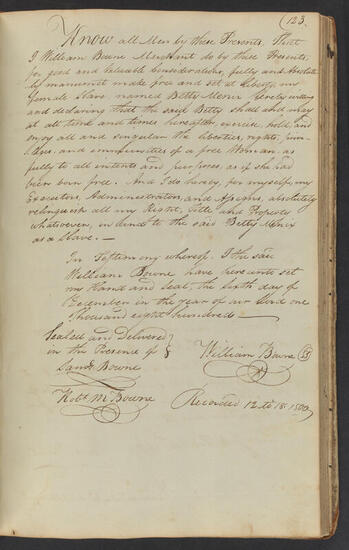 123.
Know all Men by these Presents, That
I William Bowne Merchant do by these Presents,
for good and valuable Considerations, fully and Absolute
ly manumit make free and set at Liberty my
female Slave named Betty Menix hereby willing
and declaring that the said Betty shall and may
at all times and times hereafter, exercise, hold, and
enjoy all and singular the liberties, rights, priv
ileges, and immunities of a free Woman, as
fully to all intents and purposes, as if she had
been born free. And I do hereby, for myself, my
Executors, Administrators, and Assigns, absolutely
relinquish all my Right, Title and Property
whatsoever, in and to the said Betty Menix
as a Slave. —
In Testimony whereof, I the said
William Bowne have hereunto set
my Hand and Seal, the sixth day of
December in the year of our Lord one
Thousand eight hundred —
Sealed and Delivered
in the Presence of
William Bowne
Bowne
Robt. M Bowne
Recorded 12th 1800